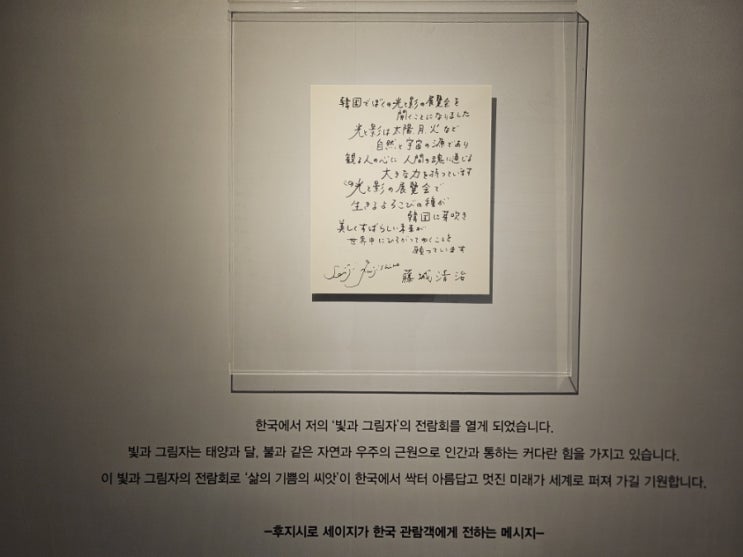 韓国でぼくの光と影の展覧会を
開くことになりました
光と影は太陽、月、火など
自然と宇宙の源であり
観る人の心に 人間の魂に通じる
大きな力を持っています
この光と影の展覧会で
生きるよろこびの種が
韓国に芽吹き
美しくすばらしい未来が
世界中にひろがってゆくことを
願っています
Seiji Fujishiro 藤城清治
한국에서 저의 '빛과 그림자'의 전람회를 열게 되었습니다.
빛과 그림자는 태양과 달, 불과 같은 자연과 우주의 근원으로 인간과 통하는 커다란 힘을 가지고 있습니다.
이 빛과 그림자의 전람회로 '삶의 기쁨의 씨앗'이 한국에서 싹터 아름답고 멋진 미래가 세계로 퍼져 가길 기원합니다.
-후지시로 세이지가 한국 관람객에게 전하는 메시지-